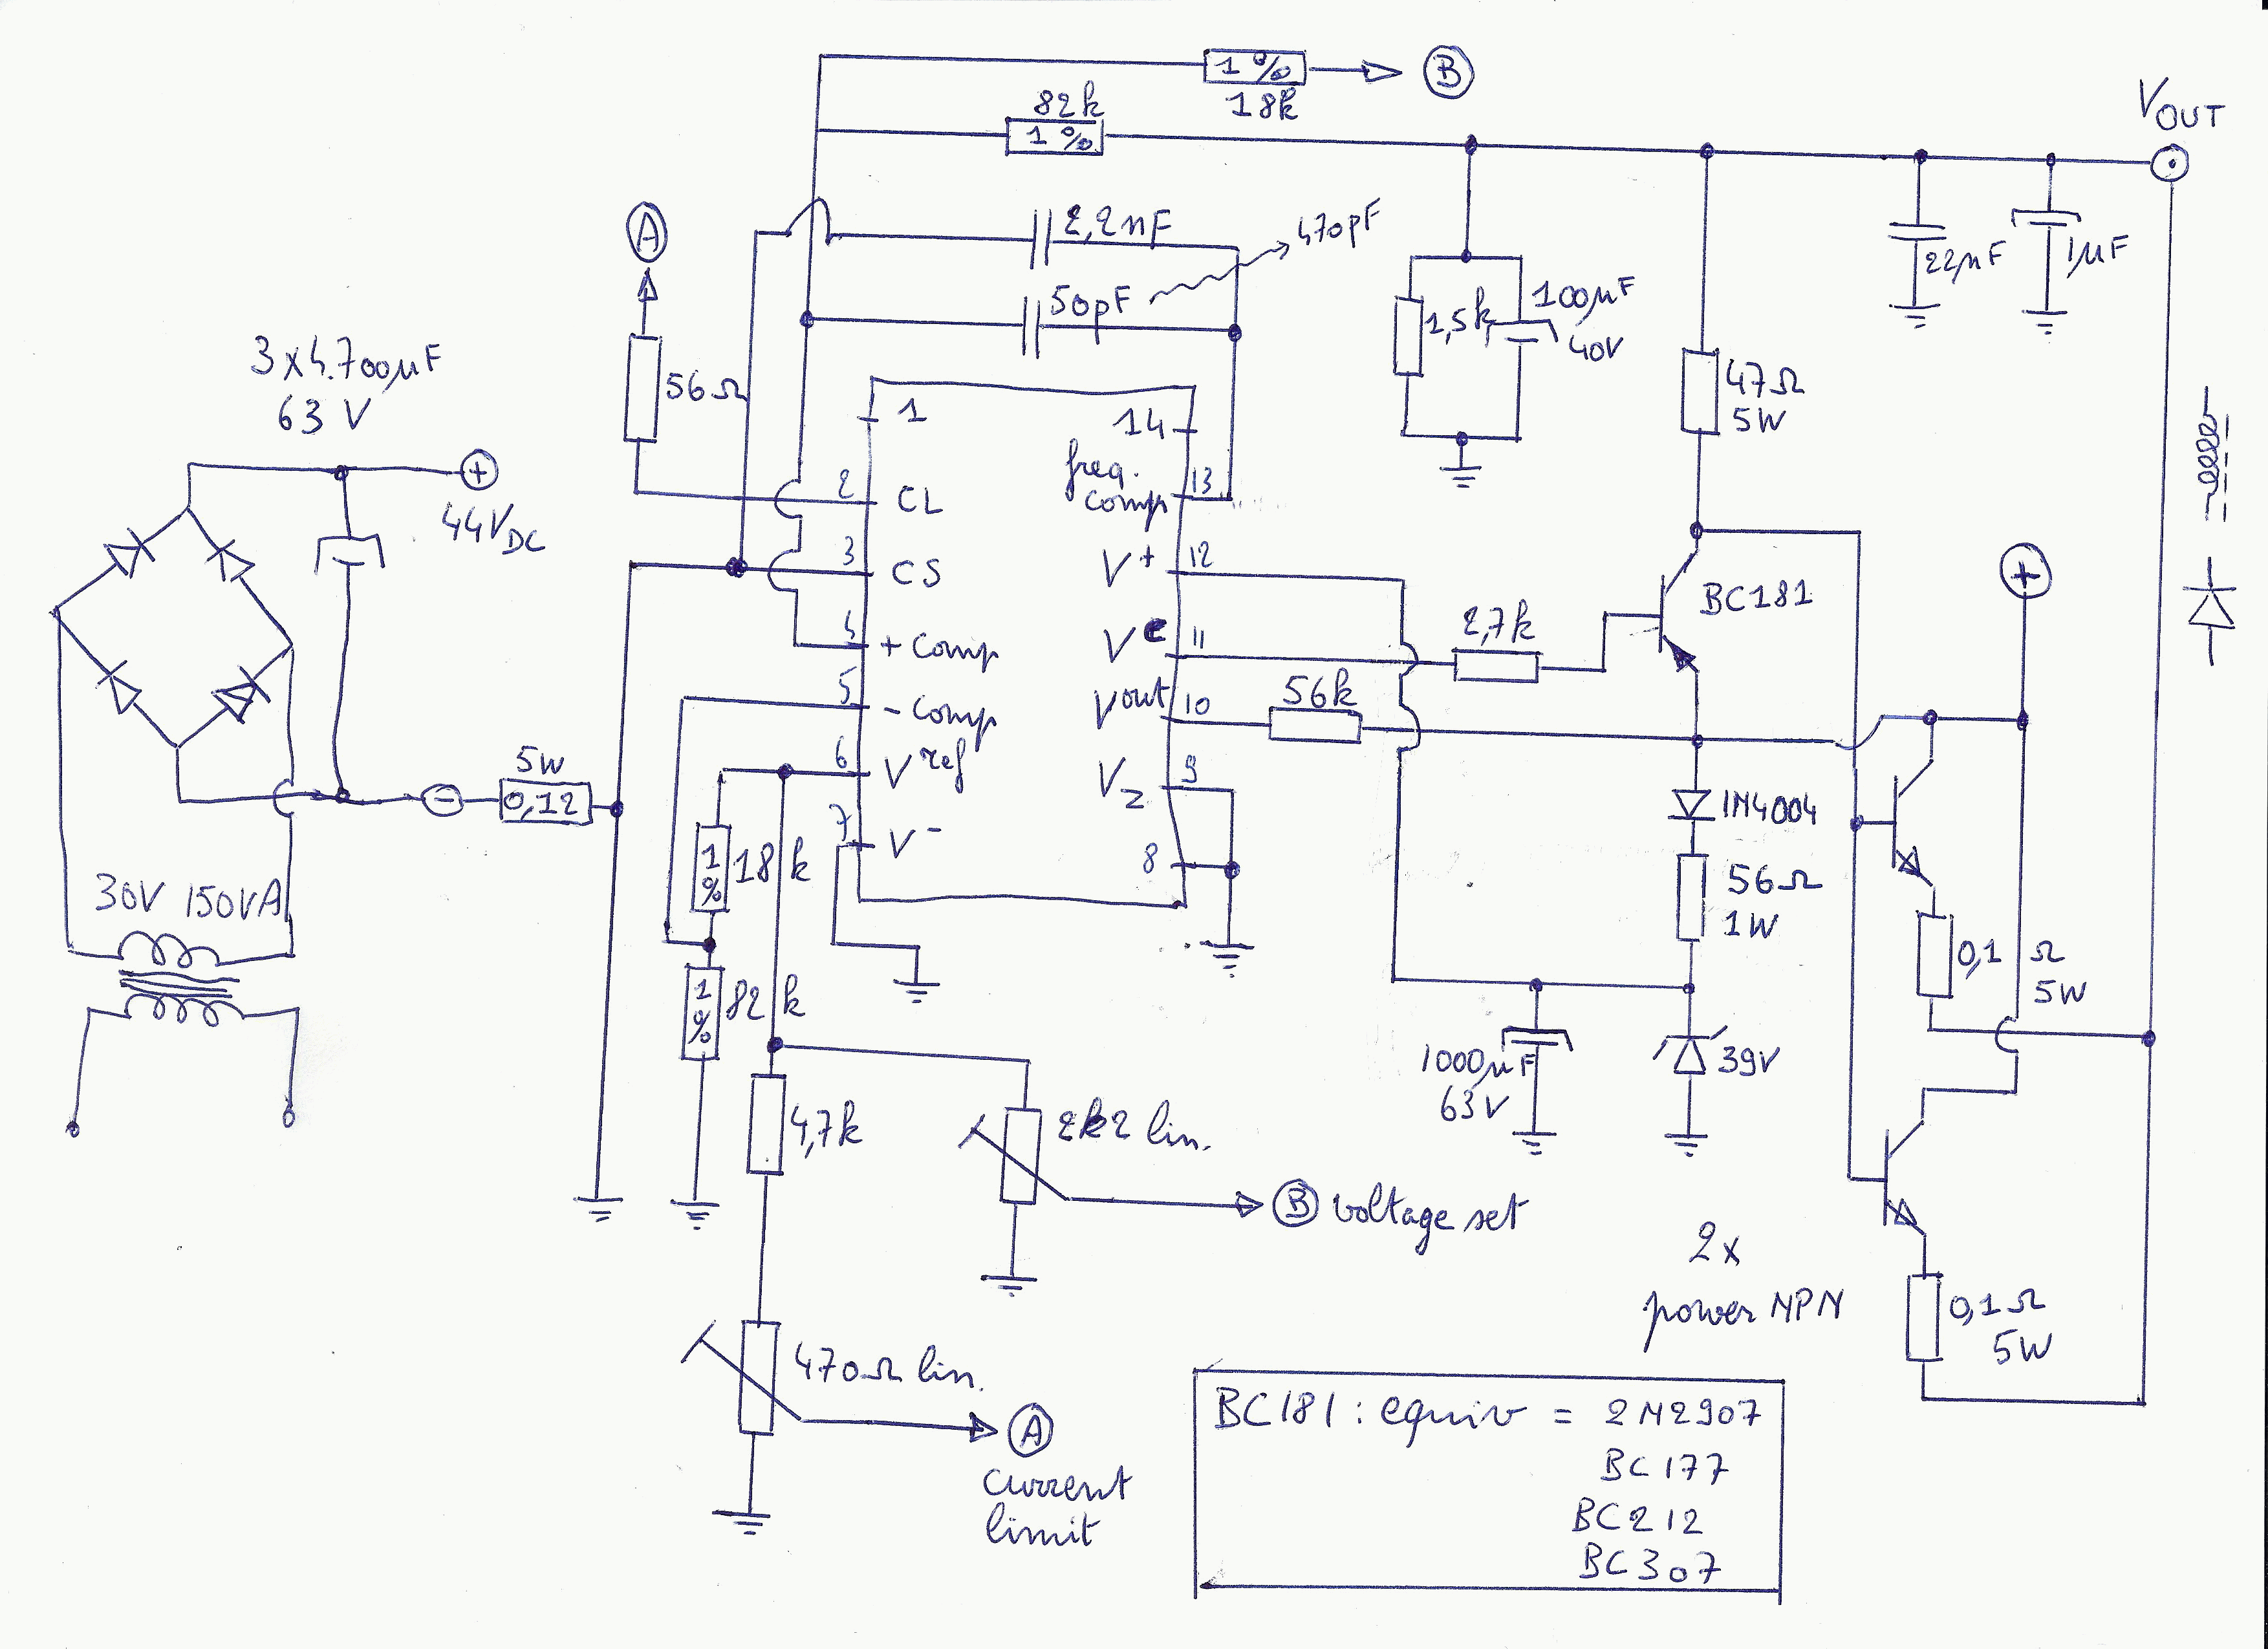 1 %
18k
B
82k
1 %
VOUT
A
2,2nF
470pF
50pF
22µF
1µF
1,5k
100µF
40V
3 x 4.700µF
63 V
56Ω
47Ω
5W
1
14
freq.
comp
13
2
CL
+
44VDC
3
CS
V+
12
BC181
+
4
+ Comp
Ve
11
2,7k
5
- Comp
Vout
10
56k
6
Vref
Vz
9
1N4004
5W
0,12
-
7
V-
8
1 %
18 k
56Ω
1W
30V 150VA
0,1 Ω
5W
1 %
82 k
1000µF
63V
39V
4,7k
2k2 lin.
B voltage set
2x
power NPN
0,1Ω
5W
470Ω lin.
A
current
limit
BC181 : equiv = 2N2907
BC177
BC212
BC307